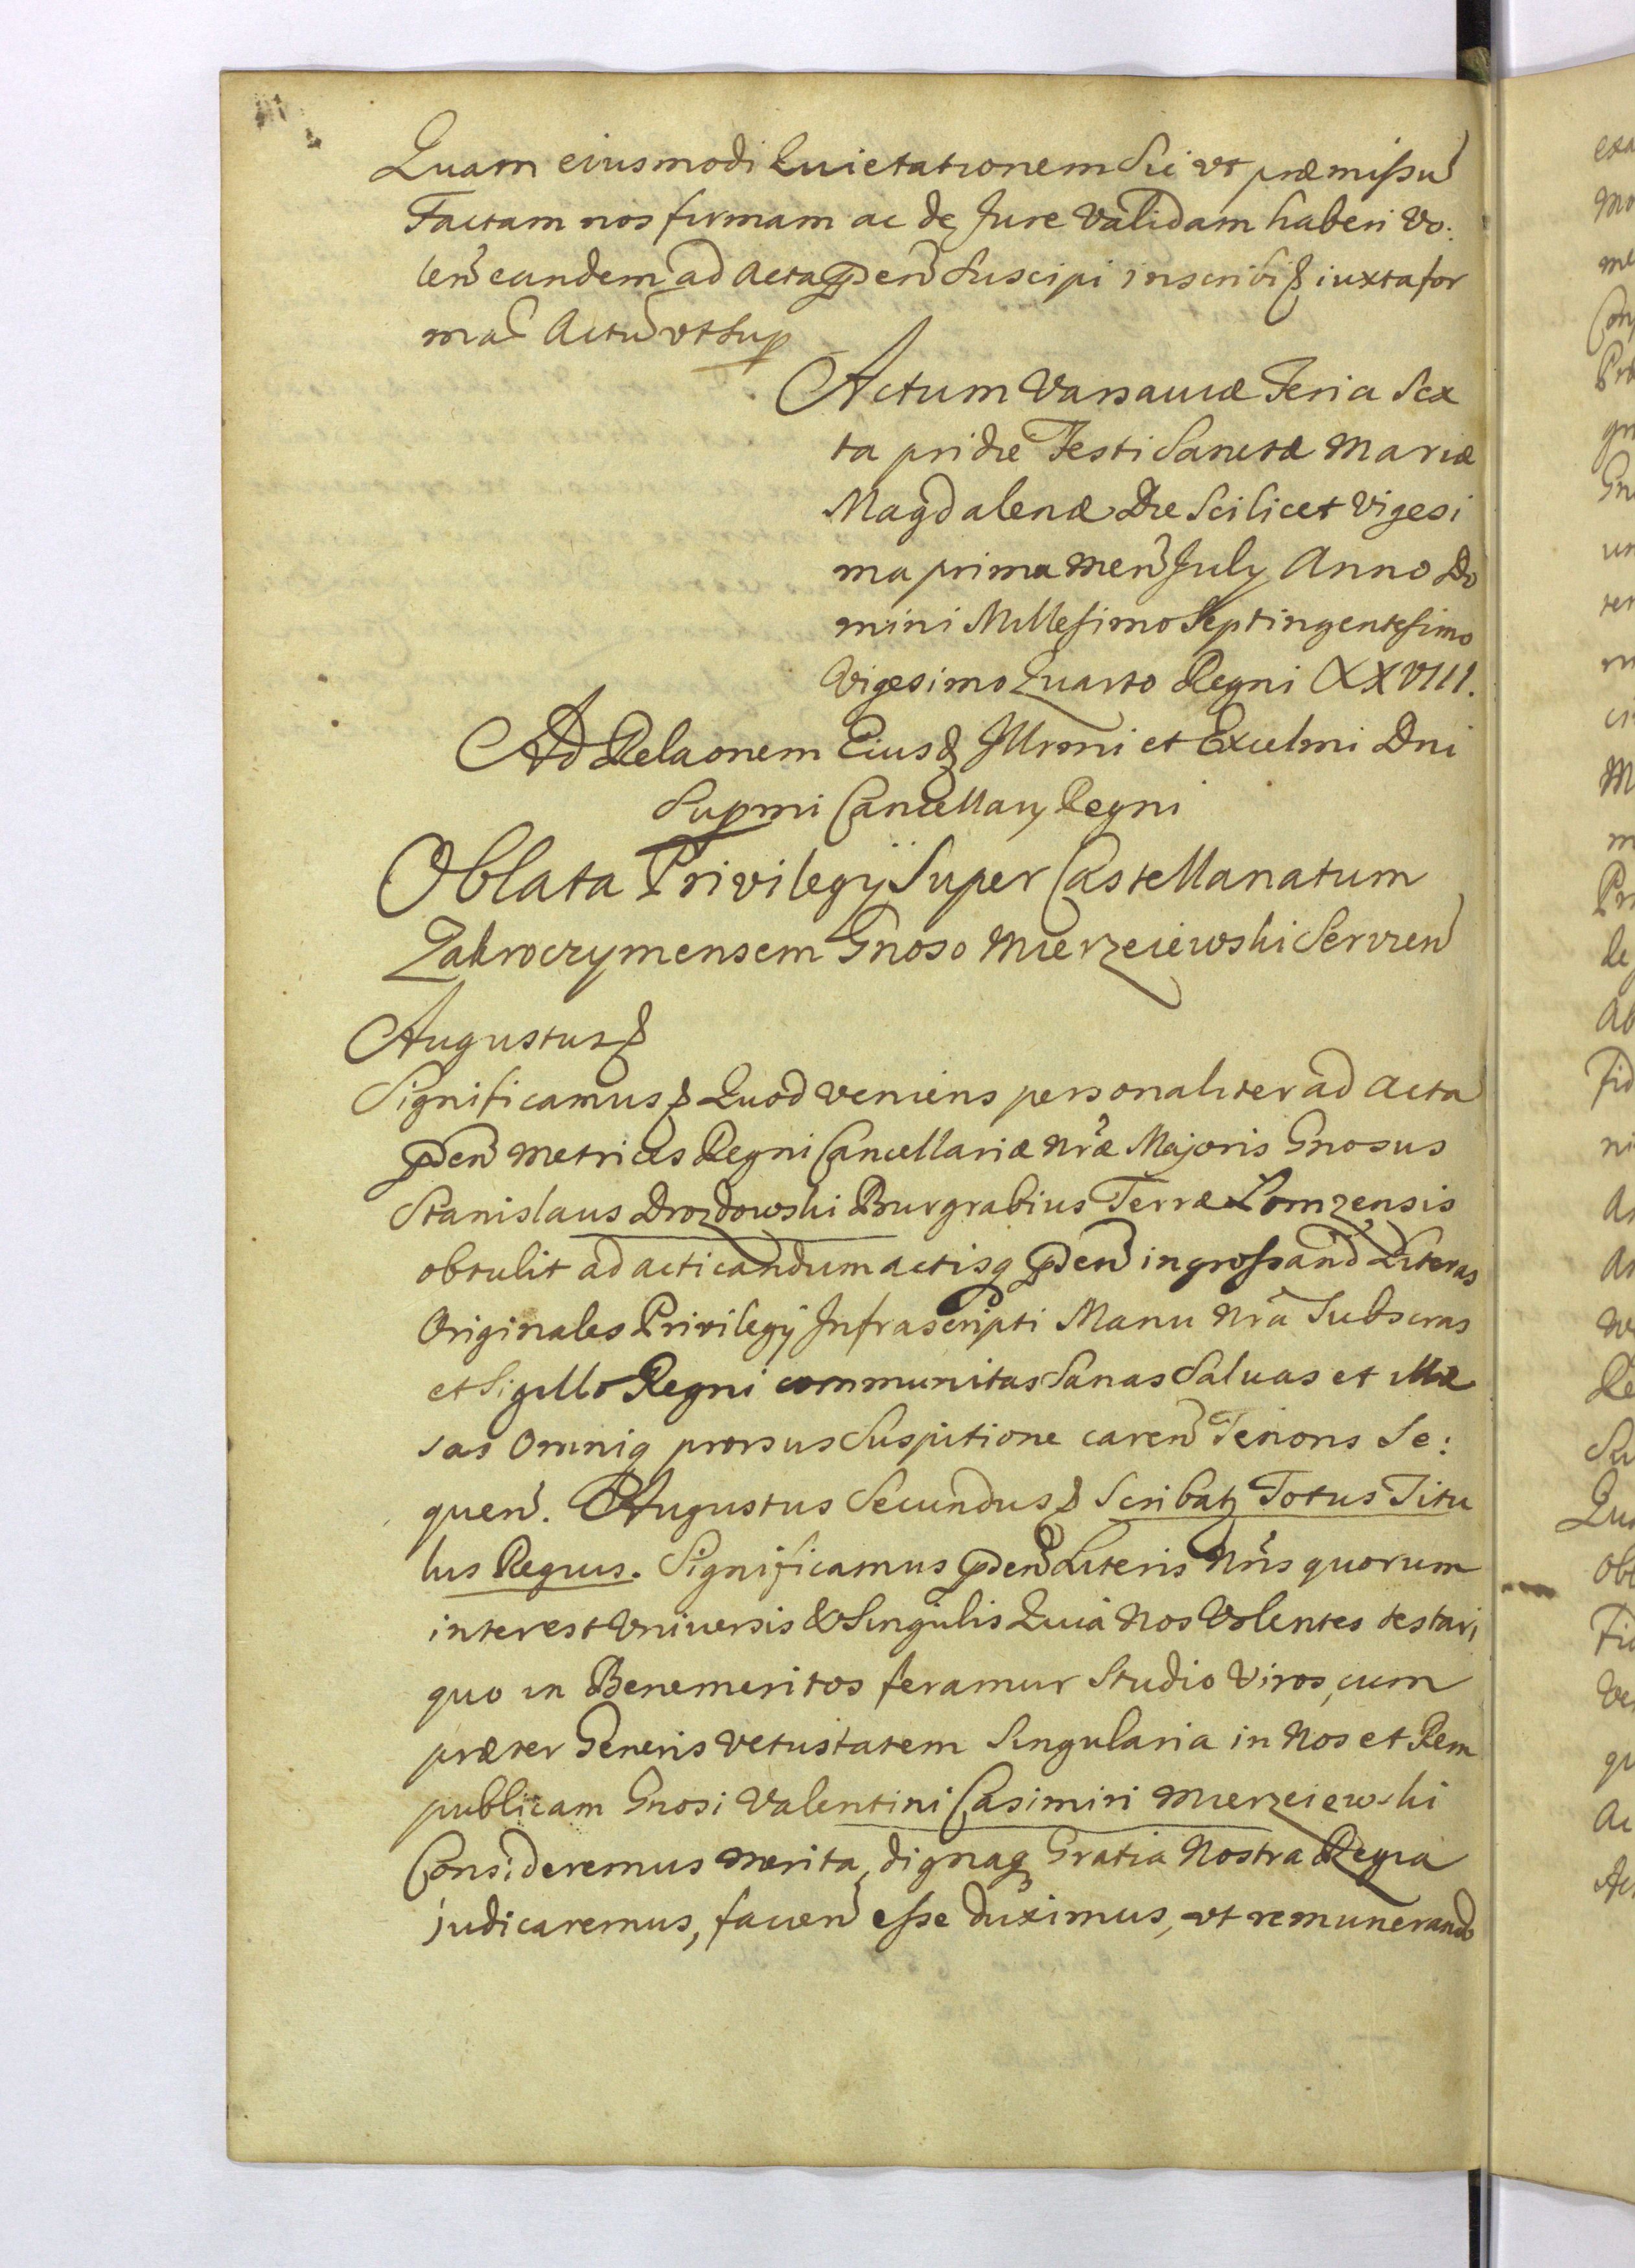 Quam eiusmodi Quietationem Sic vt præmissū
Factam nos firmam ac de Jure Validam haberi Vo:
len̄ eandem ad Acta p̄sen̄ Suscipi inscribi & iuxta for
mā Actū vt Sup
Actum Varsauiæ Feria Sex
ta pridie Festi Sanctæ Mariæ
Magdalenæ Die Scilicet Vigesi
ma prima Men̄ July Anno Do
mini Millesimo Septingentesimo
Vigesimo Quarto Regni XXVIII.
Ad Relaonem Eiusd Illrmi et Excelmi Dni
Supmi Cancellary Regni
Oblata Privilegÿ Super Castellanatum
Zakroczymensem Gnoso Mierzeiewski Servien̄
Augustus &
Significamus & Quod veniens personaliter ad Acta
p̄sen̄ Metrices Regni Cancellariæ Nr̄æ Majoris Gnosus
Stanislaus Drozdowski Burgrabius Terræ Lomzensis
obtulit ad acticandum actisq p̄sen̄ ingrossand̄ Literas
Originales Privilegÿ Infrascripti Manu Nr̄a Subscras
et Sigillo Regni communitas Sanas Saluas et illæ
sas Omniq prorsus Suspitione caren̄ Tenoris Se:
quen̄. Augustus Secundus & Scribatz Totus Titu
lus Regius. Significamus p̄sen̄ Literis Nr̄is quorum
interest Vniuersis & Singulis Quia Nos Volentes testari
quo in Benemeritos feramur Studio Viros, cum
præter Generis vetustatem Singularia in Nos et Rem
publicam Gnosi Valentini Casimiri Mierzeiewski
Consideremus merita, dignaq Gratia Nostra Regia
judicaremus, facien̄ esse duximus, vt remunerando